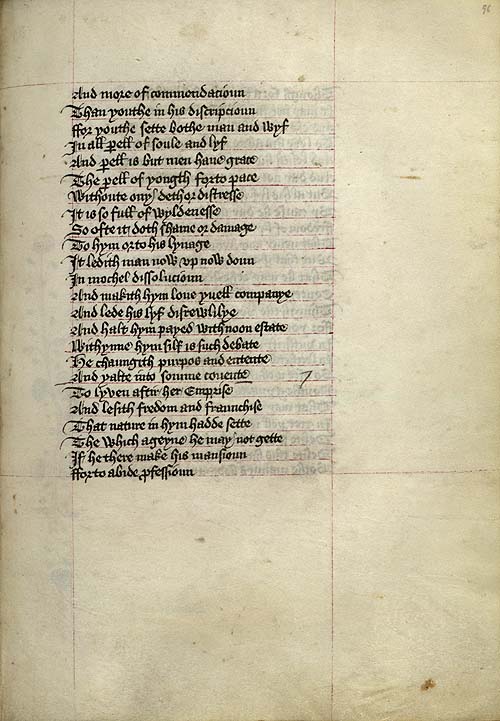 96
And more of commendacioun
Than youthe in his discripcioun
ffor youthe sette bothe man and wyf
In all perell of soule and lyf
And perell is but men haue grace
The perell of yongth forto pace
Withoute ony deth or distresse
It is so full of wyldenesse
So ofte it doth shame or damage
To hym or to his lynage
It ledith man now vp now doun
In mochel dissolucioun
And makith hym loue yuell companye
And lede his lyf disrewlilye
And halt hym payed with noon estate
Withynne hym silf is such debate
He chaungith purpos and entente
And yalte into somme couente
To lyven aftir her Emprise
And lesith fredom and fraunchise
That nature in hym hadde sette
The which ageyne he may not gette
If he there make his mansioun
ffor to abide professioun